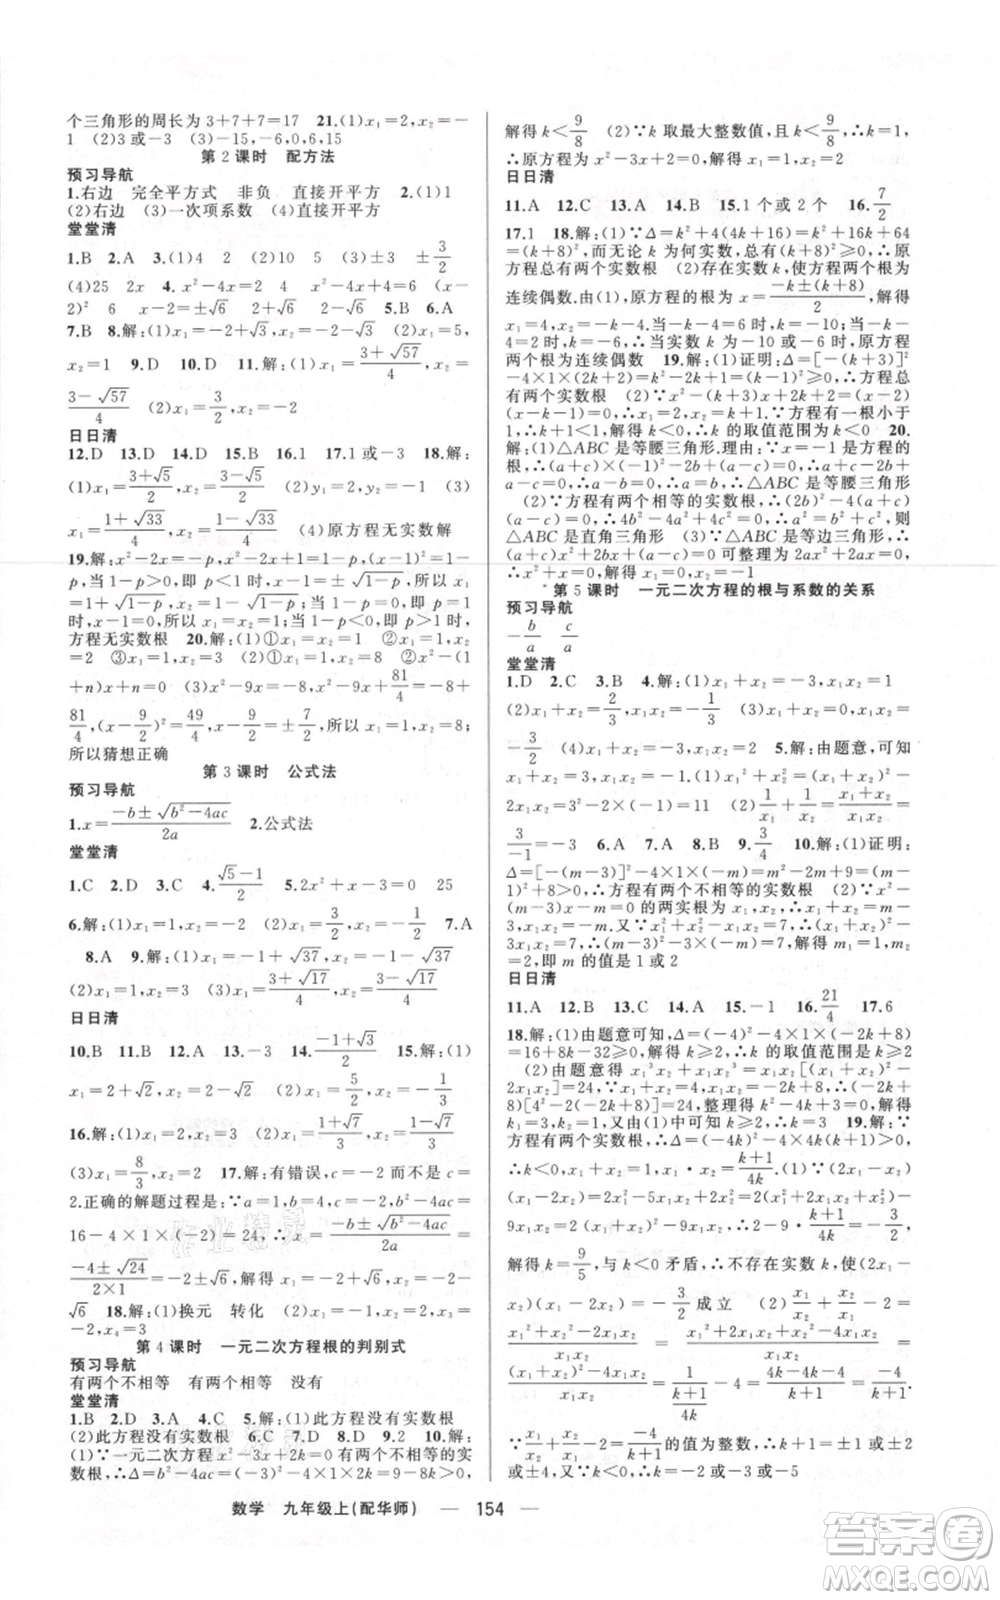 个三角形的周长为 3+7+7=17　21.(1)x₁=2,x₂=-
1　(2)3 或-3　(3)-15,-6,0,6,15
第 2 课时　配方法
预习导航
1.右边　完全平方式　非负　直接开平方　2.(1)1
(2)右边　(3)一次项系数　(4)直接开平方
堂堂清
1.B　2.A　3.(1)4　2　(2)16　4　(3)±3　±3/2
(4)25　2x　4.x²-4x=2　x²-4x+4=6　(x-
2)²　6　x-2=±√6　2+√6　2-√6　5.B　6.A
7.B　8.解:(1)x₁=-2+√3,x₂=-2-√3　(2)x₁=5,
x₂=1　9.D　10.D　11.解:(1)x₁=(3+√57)/4,x₂=
(3-√57)/4　(2)x₁=3/2,x₂=-2
日日清
12.D　13.D　14.D　15.B　16.1　17.1 或-3　18.解:
(1)x₁=(3+√5)/2,x₂=(3-√5)/2　(2)y₁=2,y₂=-2　(3)
x₁=(1+√33)/4,x₂=(1-√33)/4　(4)原方程无实数解
19.解:x²-2x=-p,x²-2x+1=1-p,(x-1)²=1-
p.当 1-p>0 时,p<1,x-1=±√(1-p),所以 x₁=1+
√(1-p),x₂=1-√(1-p);当 1-p=0 时,p=1
时,(x-1)²=0,所以 x₁=x₂=1;当 1-p<0 时,p>1 时,
方程无实数根　20.解:(1)①x₁=x₂=1　②x₁=1,x₂
=2　③x₁=1,x₂=3　(2)①x₁=1,x₂=8　②x²-(1
+n)x+n=0　(3)x²-9x=-8,x²-9x+81/4=-8+
81/4,(x-9/2)²=49/4,x-9/2=±7/2,所以 x₁=1,x₂=8;
所以猜想正确
第 3 课时　公式法
预习导航
1.x=(-b±√(b²-4ac))/2a　2.公式法
堂堂清
1.C　2.D　3.C　4.(√5-1)/2　5.2x²+x-3=0　25
6.解:(1)x₁=0,x₂=-3/2　(2)x₁=1/2,x₂=3/2　7.A
8.A　9.解:(1)x₁=-1+√37,x₂=-1-√37
(2)x₁=x₂=1/3　(3)x₁=(3+√17)/4,x₂=(3-√17)/4
日日清
10.B　11.B　12.A　13.-3　14.(-1+√3)/2　15.解:(1)
x₁=2+√2,x₂=2-√2　(2)x₁=5/2,x₂=-2
16.解:(1)x₁=x₂=√2　(2)x₁=(1+√7)/3,x₂=(1-√7)/3
(3)x₁=8/3,x₂=0　17.解:有错误,c=2 而不是 c=
2.正确的解题过程是:∵a=1,b=4,c=-2,∴b²-4ac=
16-4×1×(-2)=24,∴x=(-b±√(b²-4ac))/2a=
(-4±√24)/(2×1)=-2±√6,解得 x₁=-2+√6,x₂=-2-
√6　18.解:(1)换元　转化　(2)x₁=2,x₂=-2,x₃=
-3,x₄=3
第 4 课时　一元二次方程根的判别式
预习导航
有两个不相等　有两个相等　没有
堂堂清
1.B　2.D　3.A　4.C　5.解:(1)此方程没有实数根
(2)此方程没有实数根　6.C　7.D　8.C　9.2　10.解:
(1)∵一元二次方程 x²-3x+2k=0 有两个不相等的实
数根,∴Δ=b²-4ac=(-3)²-4×1×2k=9-8k>0,
解得 k<9/8　(2)∵k 取最大整数值,且 k<9/8,∴k=1,
∴原方程为 x²-3x+2=0,解得 x₁=1,x₂=2
日日清
11.A　12.C　13.A　14.A　15.1 个或 2 个　16.7/2
17.1　18.解:(1)∵Δ=k²+4(4k+16)=k²+16k+64
=(k+8)²,而无论 k 为何实数,总有(k+8)²≥0,∴原
方程总有两个实数根　(2)存在实数 k,使方程两根为
连续偶数.由(1),原方程的根为 x=(-k±(k+8))/2,解得
x₁=4,x₂=-k-4,当-k-4=6 时,k=-10;当-k-
4=2 时,k=-6,∴当实数 k 为-10 或-6 时,原方程
两个根为连续偶数　19.解:(1)证明:Δ=[-(k+3)]²
-4×1×(2k+2)=k²-2k+1=(k-1)²≥0,∴方程总
有两个实数根　(2)∵x²-(k+3)x+2k+2=(x-2)
(x-k-1)=0,∴x₁=2,x₂=k+1.∵方程有一根小于
1,∴k+1<1,解得 k<0,∴k 的取值范围为 k<0　20.
解:(1)△ABC 是等腰三角形.理由:∵x=-1 是方程的
根,∴(a+c)×(-1)²-2b+(a-c)=0,∴a+c-2b+
a-c=0,∴a-b=0,∴a=b,∴△ABC 是等腰三角形
(2)∵方程有两个相等的实数根,∴(2b)²-4(a+c)
(a-c)=0,∴4b²-4a²+4c²=0,∴a²=b²+c²,则
△ABC 是直角三角形　(3)∵△ABC 是等边三角形,
∴(a+c)x²+2bx+(a-c)=0 可整理为 2ax²+2ax=
0,∴x²+x=0,解得 x₁=0,x₂=-1
*第 5 课时　一元二次方程的根与系数的关系
预习导航
-b/a　c/a
堂堂清
1.D　2.C　3.B　4.解:(1)x₁+x₂=-3,x₁x₂=1
(2)x₁+x₂=2/3,x₁x₂=-1/3　(3)x₁+x₂=0,x₁x₂=
-3/2　(4)x₁+x₂=4,x₁x₂=2　5.解:由题意,可知
x₁+x₂=3,x₁x₂=-1.(1)x₁²+x₂²=(x₁+x₂)²-
2x₁x₂=3²-2×(-1)=11　(2)1/x₁+1/x₂=(x₁+x₂)/x₁x₂=
3/-1=-3　6.A　7.A　8.B　9.3/4　10.解:(1)证明:
Δ=[-(m-3)]²-4×1×(-m)=m²-2m+9=(m-
1)²+8>0,∴方程有两个不相等的实数根　(2)∵x²-
(m-3)x-m=0 的两实根为 x₁,x₂,∴x₁+x₂=m-3,
x₁x₂=-m.又∵x₁²+x₂²-x₁x₂=7,∴(x₁+x₂)²-
3x₁x₂=7,∴(m-3)²-3×(-m)=7,解得 m₁=1,m₂
=2,即 m 的值是 1 或 2
日日清
11.A　12.B　13.C　14.A　15.-1　16.21/4　17.6
18.解:(1)由题意可知,Δ=(-4)²-4×1×(-2k+8)
=16+8k-32≥0,解得 k≥2,∴k 的取值范围是 k≥2
(2)由题意得 x₁³x₂+x₁x₂³=x₁x₂[(x₁+x₂)²-
2x₁x₂]=24,∵x₁+x₂=4,x₁x₂=-2k+8,∴(-2k+
8)[4²-2(-2k+8)]=24,整理得 k²-4k+3=0,解得
k₁=3,k₂=1.由(1)可知 k≥2,∴k=3　19.解:∵
方程有两个实数根,∴Δ=(-4k)²-4×4k(k+1)≥0,
∴k<0.(1)∵x₁+x₂=1,x₁·x₂=(k+1)/4k,∴(2x₁-
x₂)(x₁-2x₂)=2(x₁+x₂)²-9x₁x₂=-3/2,即 2×1²-
9x₁x₂=-3/2,∴9x₁x₂=7/2,∴9·(k+1)/4k=7/2,
解得 k=9/5,与 k<0 矛盾,∴不存在实数 k,使(2x₁-
x₂)(x₁-2x₂)=-3/2 成立　(2)x₁/x₂+x₂/x₁-2=
(x₁²+x₂²-2x₁x₂)/x₁x₂=((x₁+x₂)²-4x₁x₂)/x₁x₂=
(x₁+x₂)²/x₁x₂-4=1/((k+1)/4k)-4=(4k-4k-4)/(k+1)=-4/(k+1).
∵x₁/x₂+x₂/x₁-2=-4/(k+1)的值为整数,∴k+1=±1 或±2
或±4.又∵k<0,∴k=-2,-3,-5
数学　九年级上(配华师)　— 154 —
作业精灵
答案圈
MXQE.COM